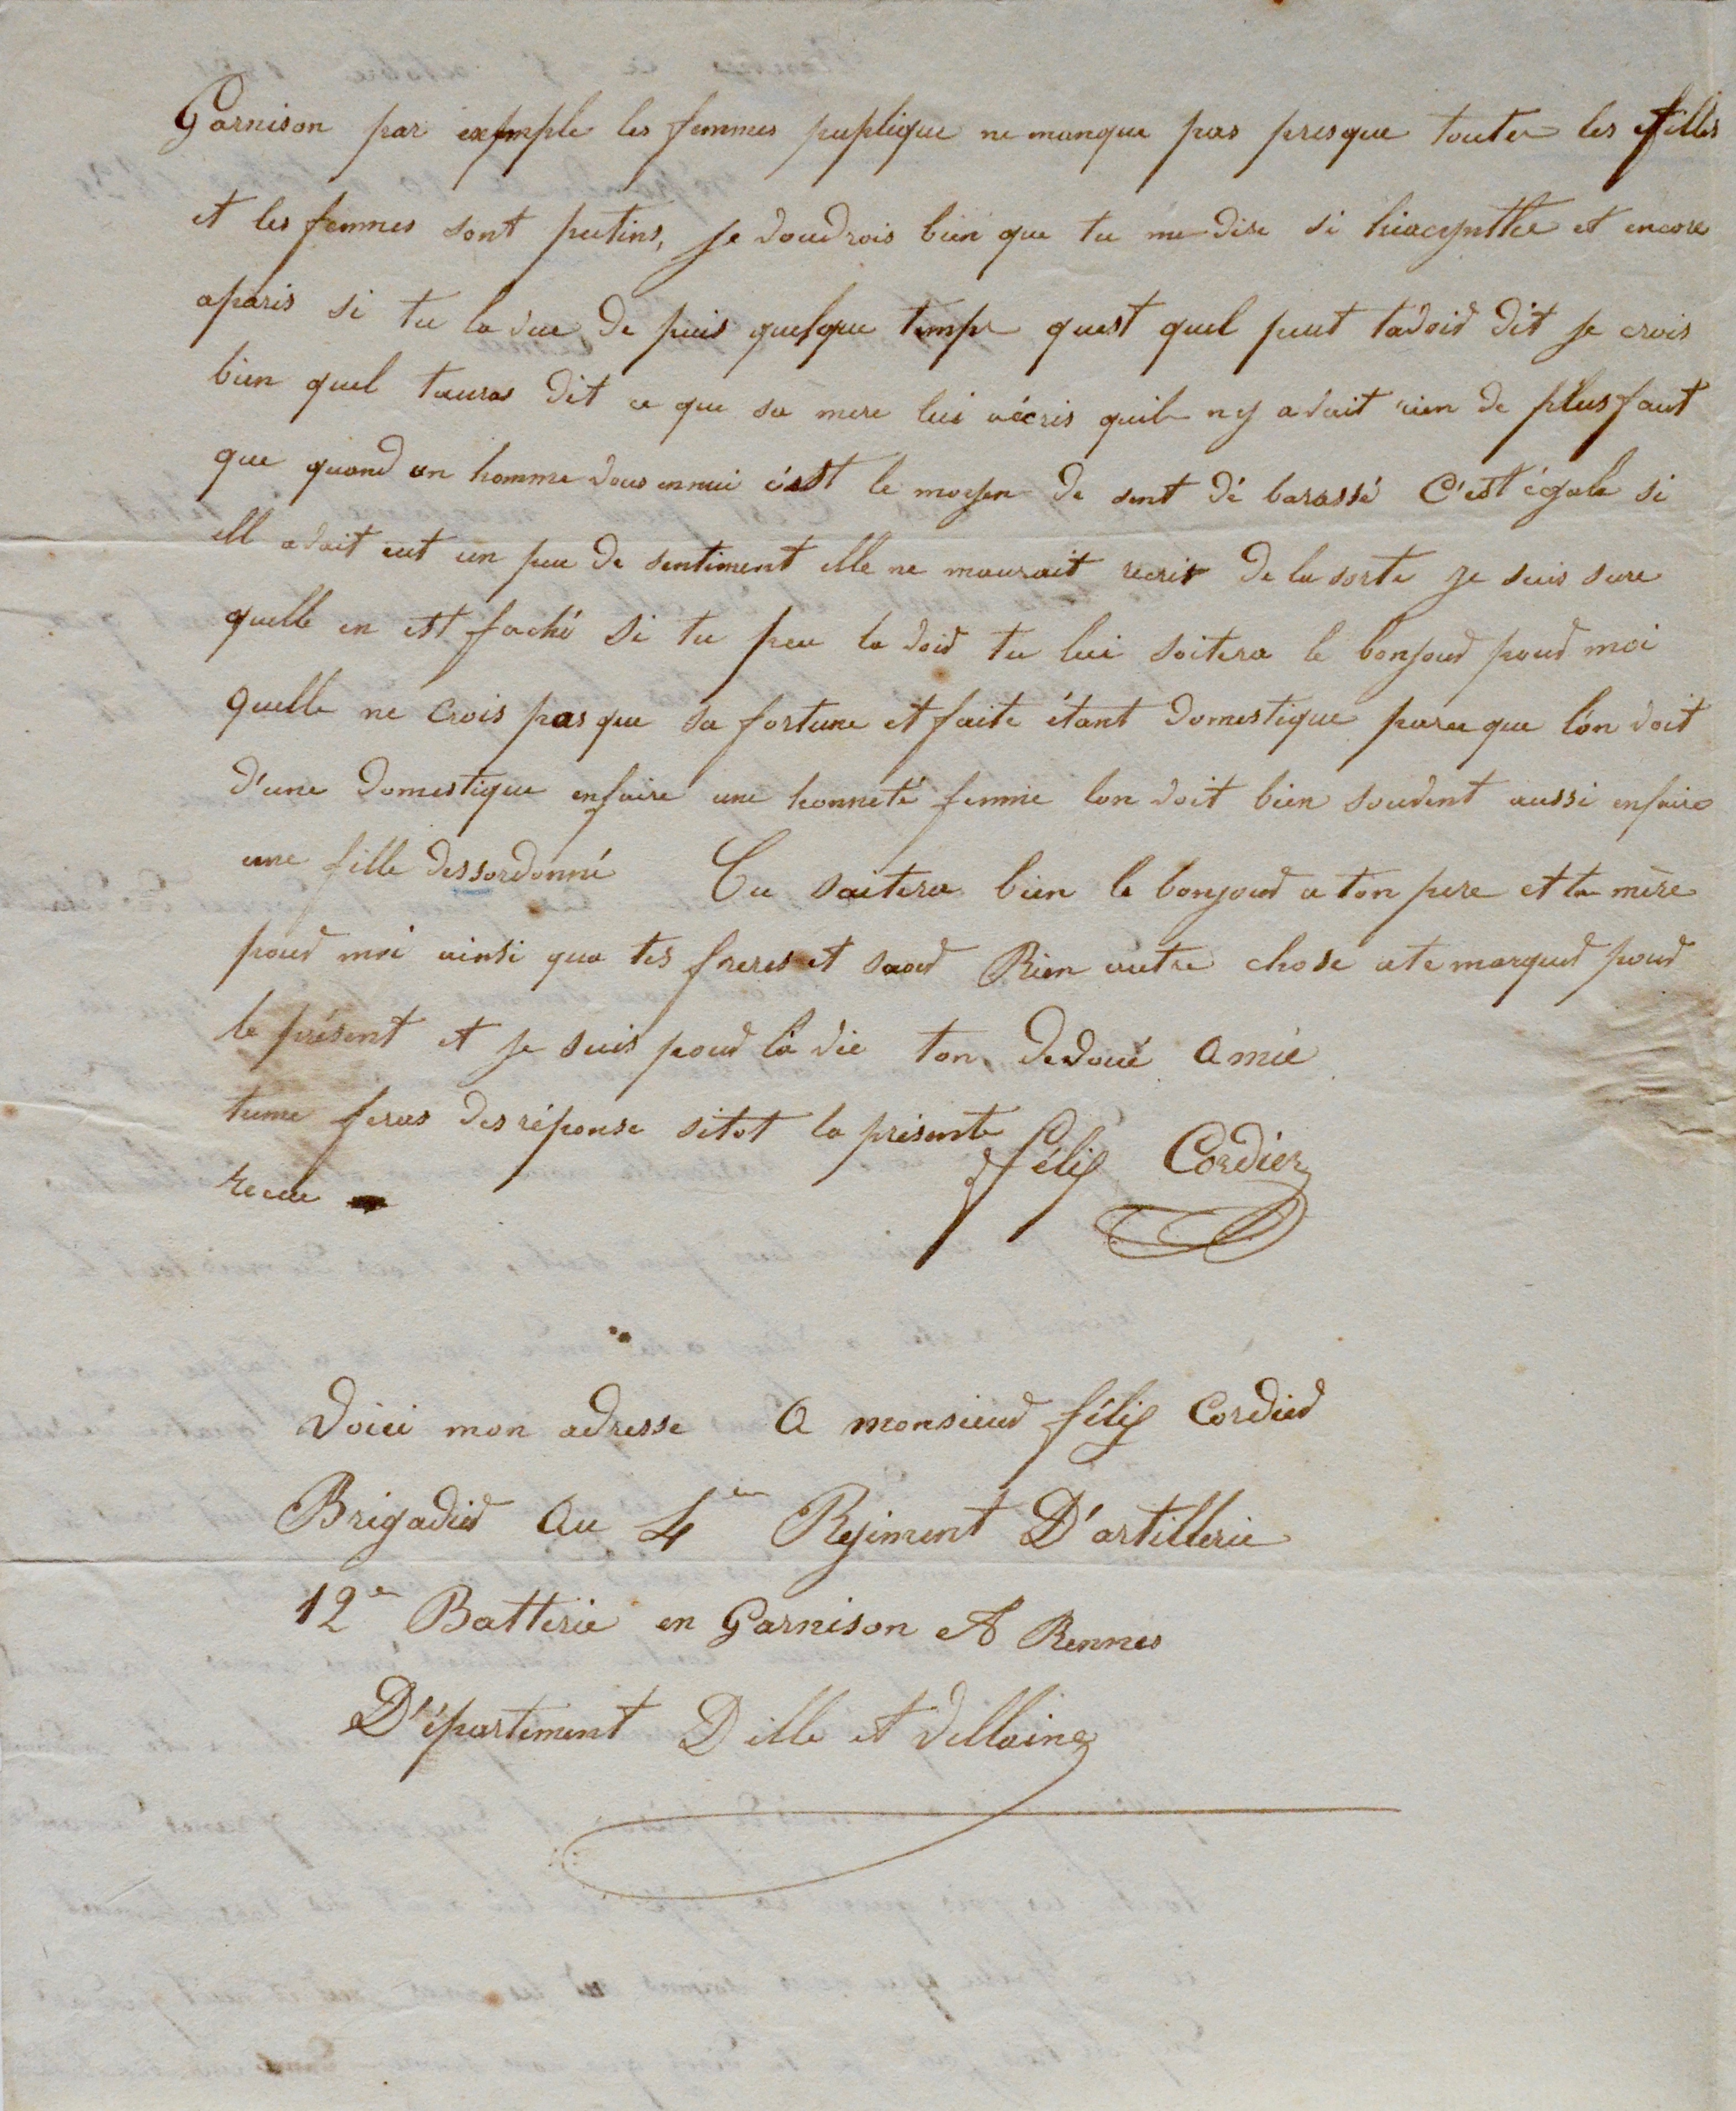 Garnison par exemple les femmes puplique ne manque pas presque toute les filles
et les femmes sont putins, je voudrois bien que tu me dise si hiacynthe et encore
aparis si tu la vue de puis quelque temps quest quel peut tavoir dit je crois
bien quel tauras dit ce que sa mere lui aécris quil ny avait rien de plus faut
que quand un homme vous ennui c'est le moyen de sent dé barassé C'est égale si
ell avait eut un peu de sentiment elle ne maurait recris de la sorte je suis sure
quelle en est faché si tu peu la voir tu lui soitera le bonjour pour moi
quelle ne crois pas que sa fortune et faite étant domestique parce que lon voit
d'une domestique enfaire une honneté femme lon voit bien souvent aussi enfaire
une fille dessordonné Tu saitera bien le bonjour a ton pere et ta mère
pour moi ainsi qua tes freres et saour Rien autre chose ate marquer pour
le présent et je suis pour la vie ton devoué amie
tume feras des réponse sitot la présente
recue
Félix Cordier
Voici mon adresse A monsieur félix Cordier
Brigadier Au 4e Rejiment D'artillerie
12e Batterie en Garnison A Rennes
D'épartement Dille et villaine